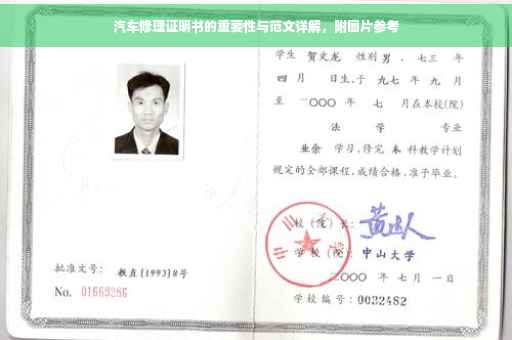 汽车修理证明书的重要性与范文详解，附图片参考
学生 贺文龙 性别 男，七三 年
四 月 日生，于 九七 年 九 月
至 二〇〇〇 年 七 月在本校(院)
法 学 专业
业余 学习，修完 本 科教学计划
规定的全部课程，成绩合格，准予毕业。
校 (院) 长：
学 校 (院)：中山大学
二〇〇〇 年 七 月 一 日
学校编号：0032482
批准文号：教直[1993]8号
No. 01669286